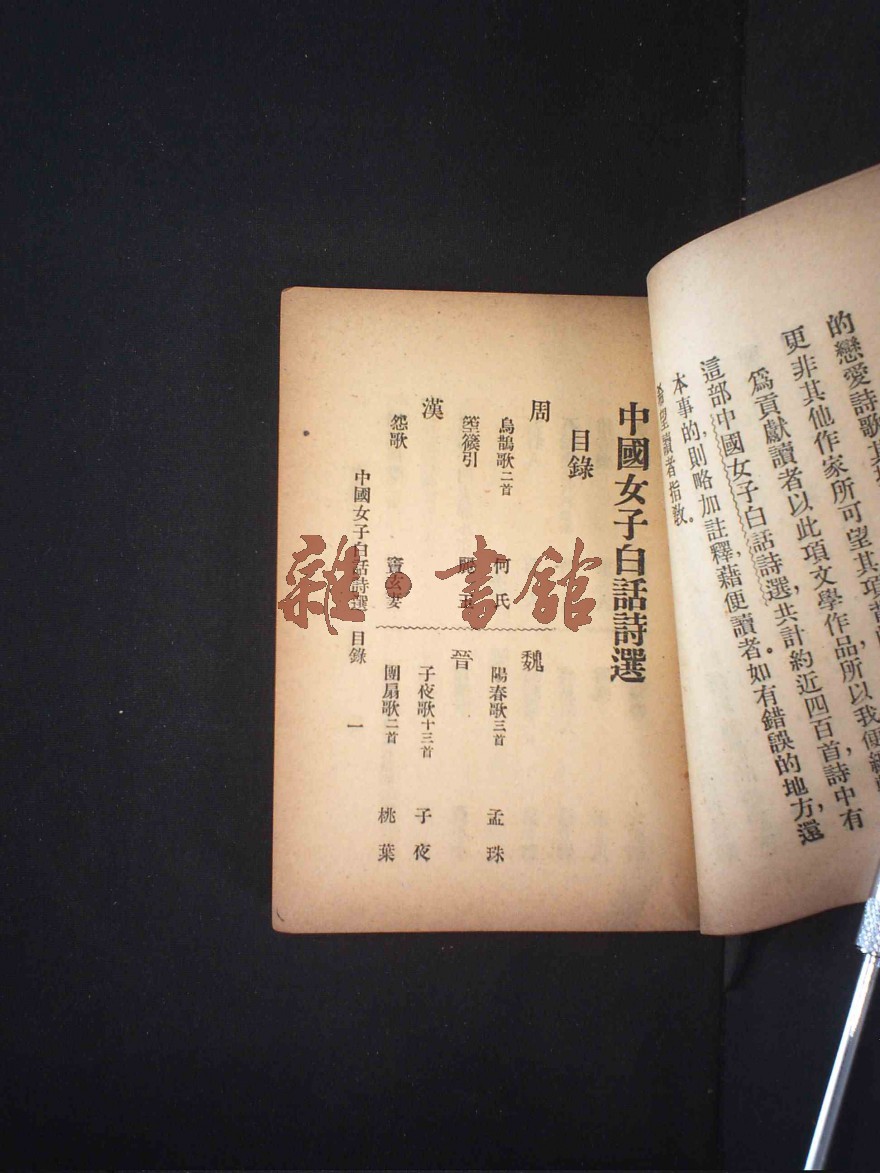 的戀愛詩歌其
更非其他作家所可望其項背的,所以我便
爲貢獻讀者以此項文學作品
這部中國女子白話詩選,共計約近四百首,詩中有
本事的,則略加註釋,藉便讀者如有錯誤的地方,還
希望讀者指教。
中國女子白話詩選
目錄
周
烏鵲歌二首 何氏
箜篌引 麗玉
漢
怨歌 竇玄妻
魏
陽春歌三首 孟珠
晉
子夜歌十三首 子夜
團扇歌二首 桃葉
中國女子白話詩選 目錄 一
雜·書館